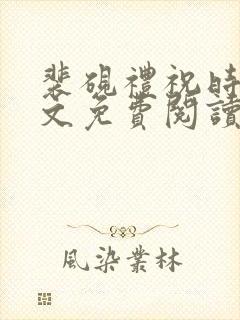 裴硯禮祝時
文免費閱讀
風染叢林